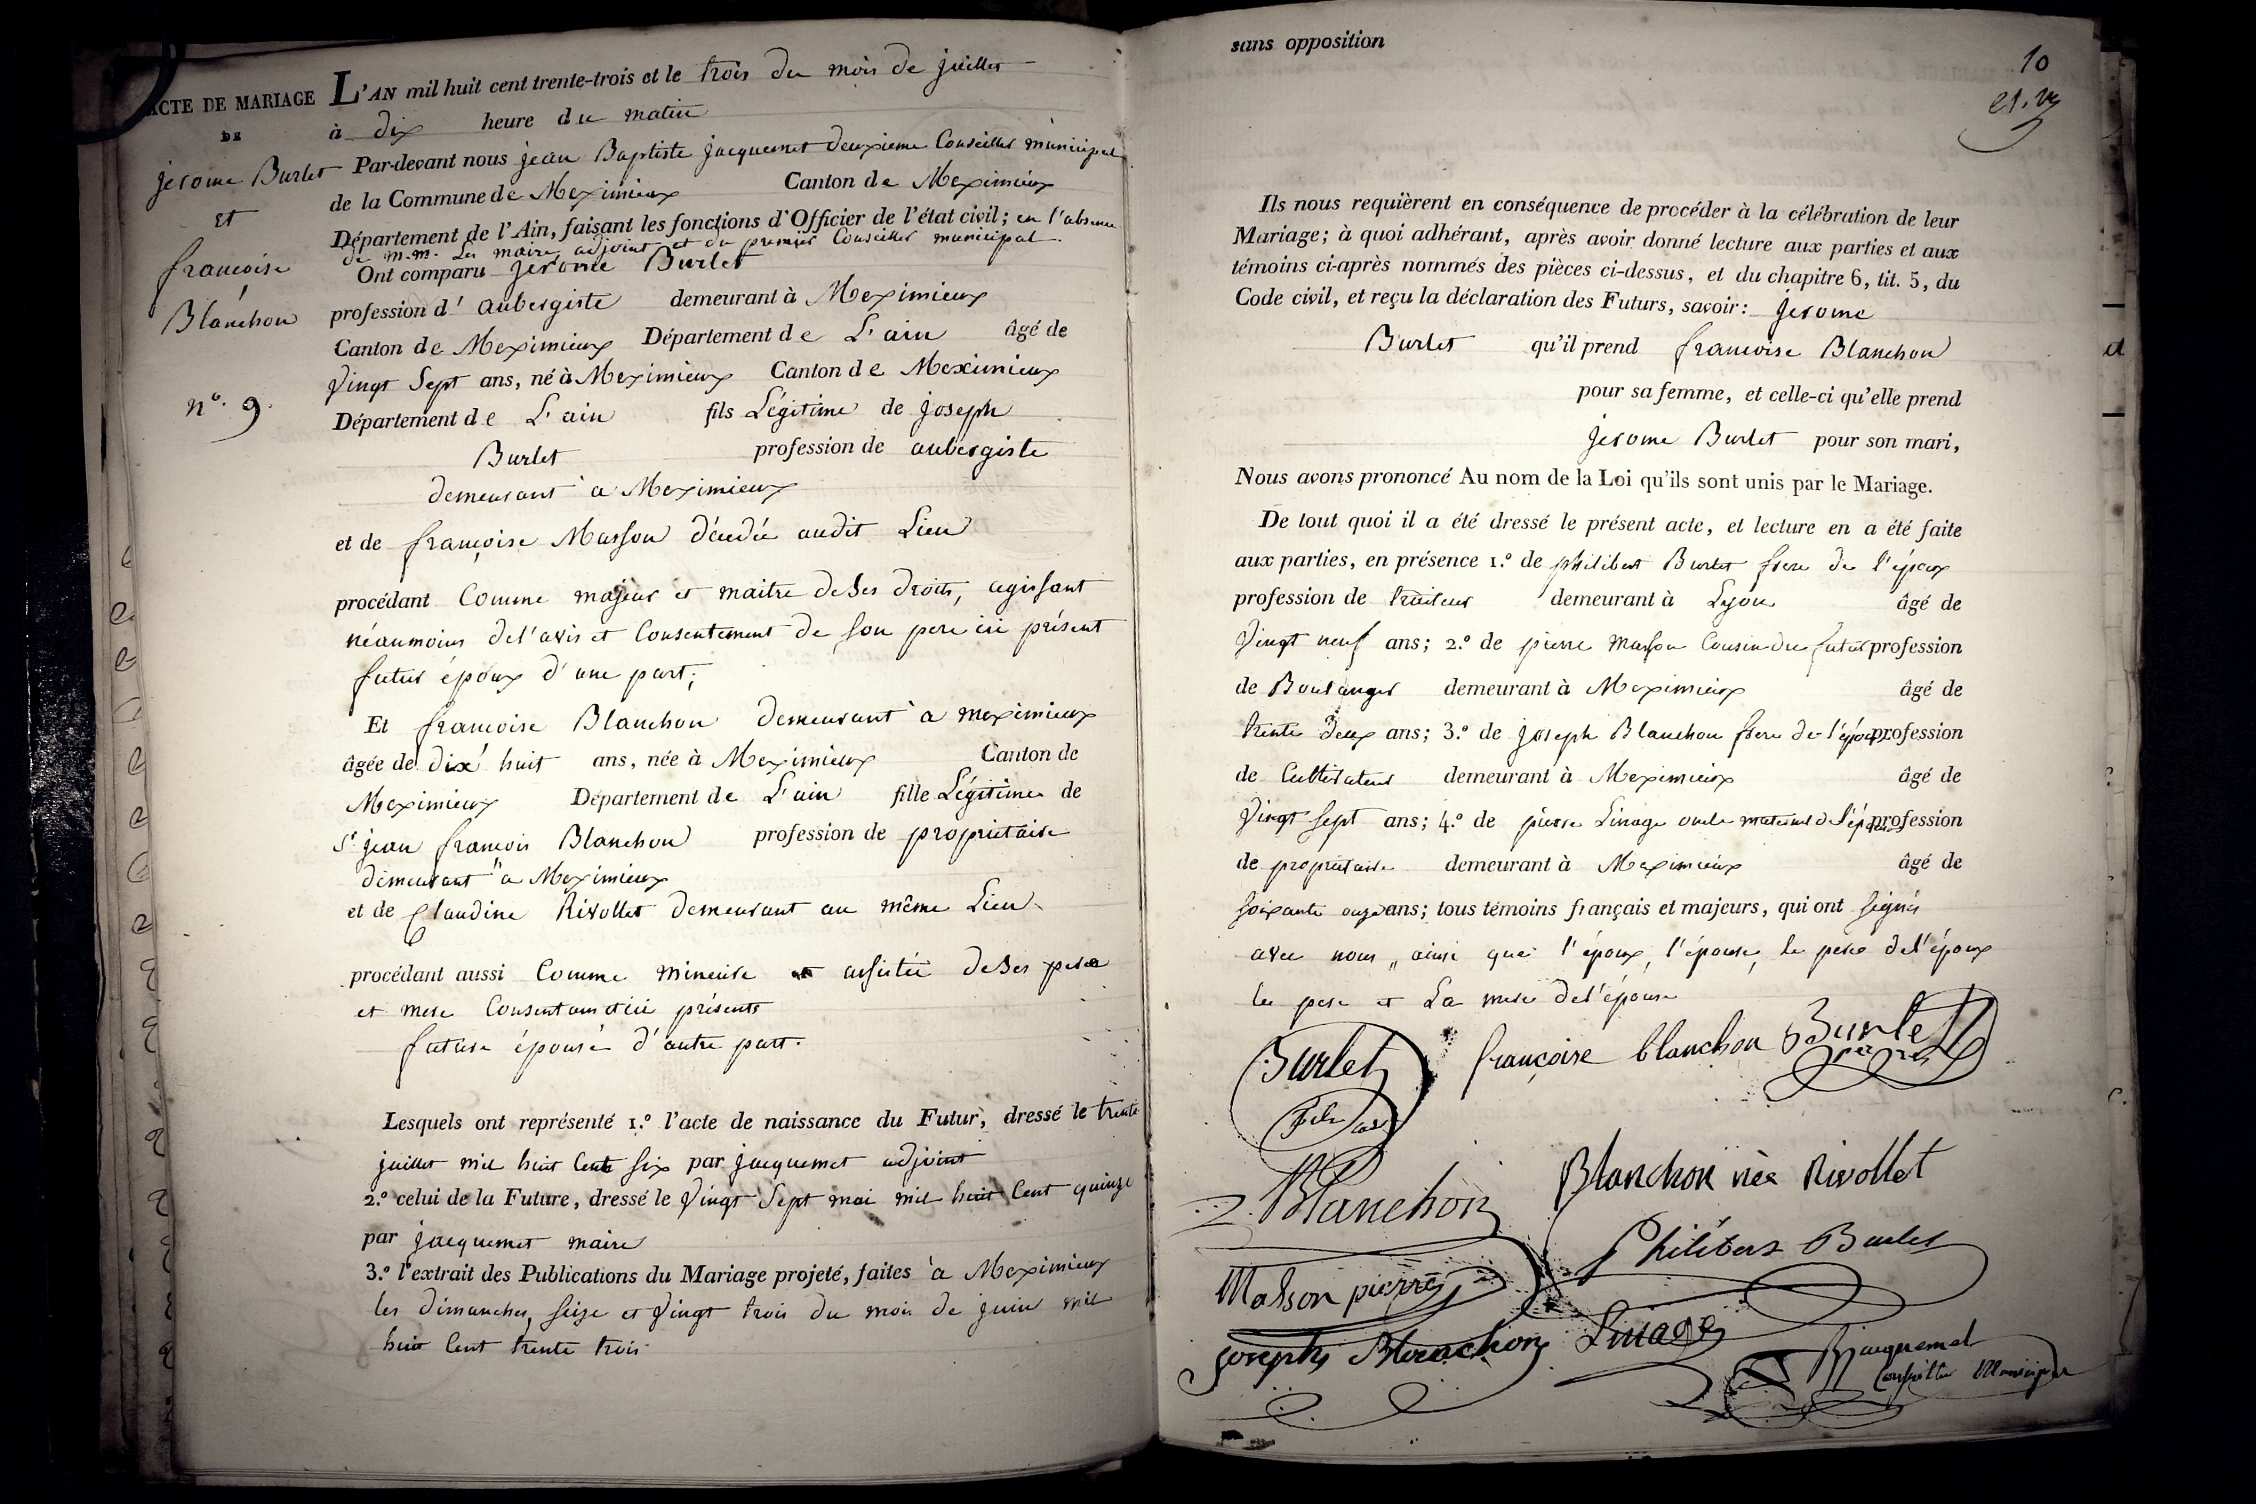 ACTE DE MARIAGE
DE
jerome Burlet
et
francoise
Blanchon
n.º 9.
L'AN mil huit cent trente-trois et le trois du mois de juillet
à dix heure du matin
Par-devant nous jean Baptiste jacquemet deuxieme Conseiller municipal
de la Commune de Meximieux Canton de Meximieux
Département de l'Ain, faisant les fonctions d'Officier de l'état civil; en l'absence
de m.m. Les maire, adjoint et du premier Conseiller municipal.
Ont comparu jerome Burlet
profession d'aubergiste demeurant à Meximieux
Canton de Meximieux Département de L'ain âgé de
Vingt Sept ans, né à Meximieux Canton de Meximieux
Département de L'ain fils Légitime de joseph
Burlet profession de aubergiste
demeurant a Meximieux
et de françoise Masson décédée audit Lieu
procédant Comme majeur et maitre de Ses droits, agissant
néanmoins de l'avis et Consentement de son pere ici présent
futur époux d'une part;
Et francoise Blanchon demeurant a meximieux
âgée de dix huit ans, née à Meximieux Canton de
Meximieux Département de L'ain fille Légitime de
Sr jean francois Blanchon profession de propriétaire
demeurant a Meximieux
et de Claudine Rivollet demeurant au même Lieu
procédant aussi Comme mineure assistée de Ses pere
et mere Consentant ici présents
future épouse d'autre part.
Lesquels ont représenté 1.º l'acte de naissance du Futur, dressé le trente
juillet mil huit Cent six par jacquemet adjoint
2.º celui de la Future, dressé le Vingt Sept mai mil huit Cent quinze
par jacquemet maire
3.º l'extrait des Publications du Mariage projeté, faites à Meximieux
les dimanches, seize et Vingt trois du mois de juin mil
huit Cent trente trois
sans opposition
10
Ils nous requièrent en conséquence de procéder à la célébration de leur
Mariage; à quoi adhérant, après avoir donné lecture aux parties et aux
témoins ci-après nommés des pièces ci-dessus, et du chapitre 6, tit. 5, du
Code civil, et reçu la déclaration des Futurs, savoir: jerome
Burlet qu'il prend francoise Blanchon
pour sa femme, et celle-ci qu'elle prend
jerome Burlet pour son mari,
Nous avons prononcé Au nom de la Loi qu'ils sont unis par le Mariage.
De tout quoi il a été dressé le présent acte, et lecture en a été faite
aux parties, en présence 1.º de philibert Burlet frere de l'époux
profession de traiteur demeurant à Lyon âgé de
Vingt neuf ans; 2.º de pierre Masson Cousin du futur profession
de Boulanger demeurant à Meximieux âgé de
trente deux ans; 3.º de joseph Blanchon frere de l'épouse profession
de Cultivateur demeurant à Meximieux âgé de
Vingt sept ans; 4.º de pierre Linage oncle maternel de l'épouse profession
de propriétaire demeurant à Meximieux âgé de
soixante onze ans; tous témoins français et majeurs, qui ont signés
avec nous, ainsi que l'époux, l'épouse, le pere de l'époux
le pere et La mere de l'épouse
Burlet
Fils
françoise blanchon
Burlet
pere
Blanchon
Blanchon née Rivollet
Philibert Burlet
Masson pierre
joseph Blanchon
Linage
Jacquemet
Conseiller Municipal